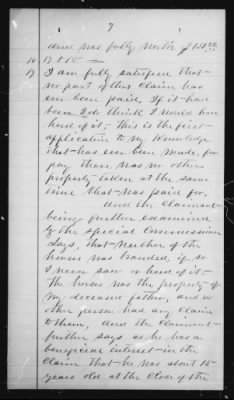 7
and was fully worth $150.00
16 17 & 18 —
19 I am fully satisfied that
no part of this claim has
ever been paid, If it had
been I do think I would have
heard of it, This is the first
application to my knowledge
that has ever been made, for
pay, there was no other
property taken at the same
time that was paid for.
And the Claimant
being further examined
by the special Commissioner
says, that neither of the
horses was branded, if so
I never saw or heard of it.
The horses was the property of
my deceased father, and no
other person had any claim
to them, And the Claimant
further says as he has a
beneficial interest in the
claim that he was about 15
years old at the close of the